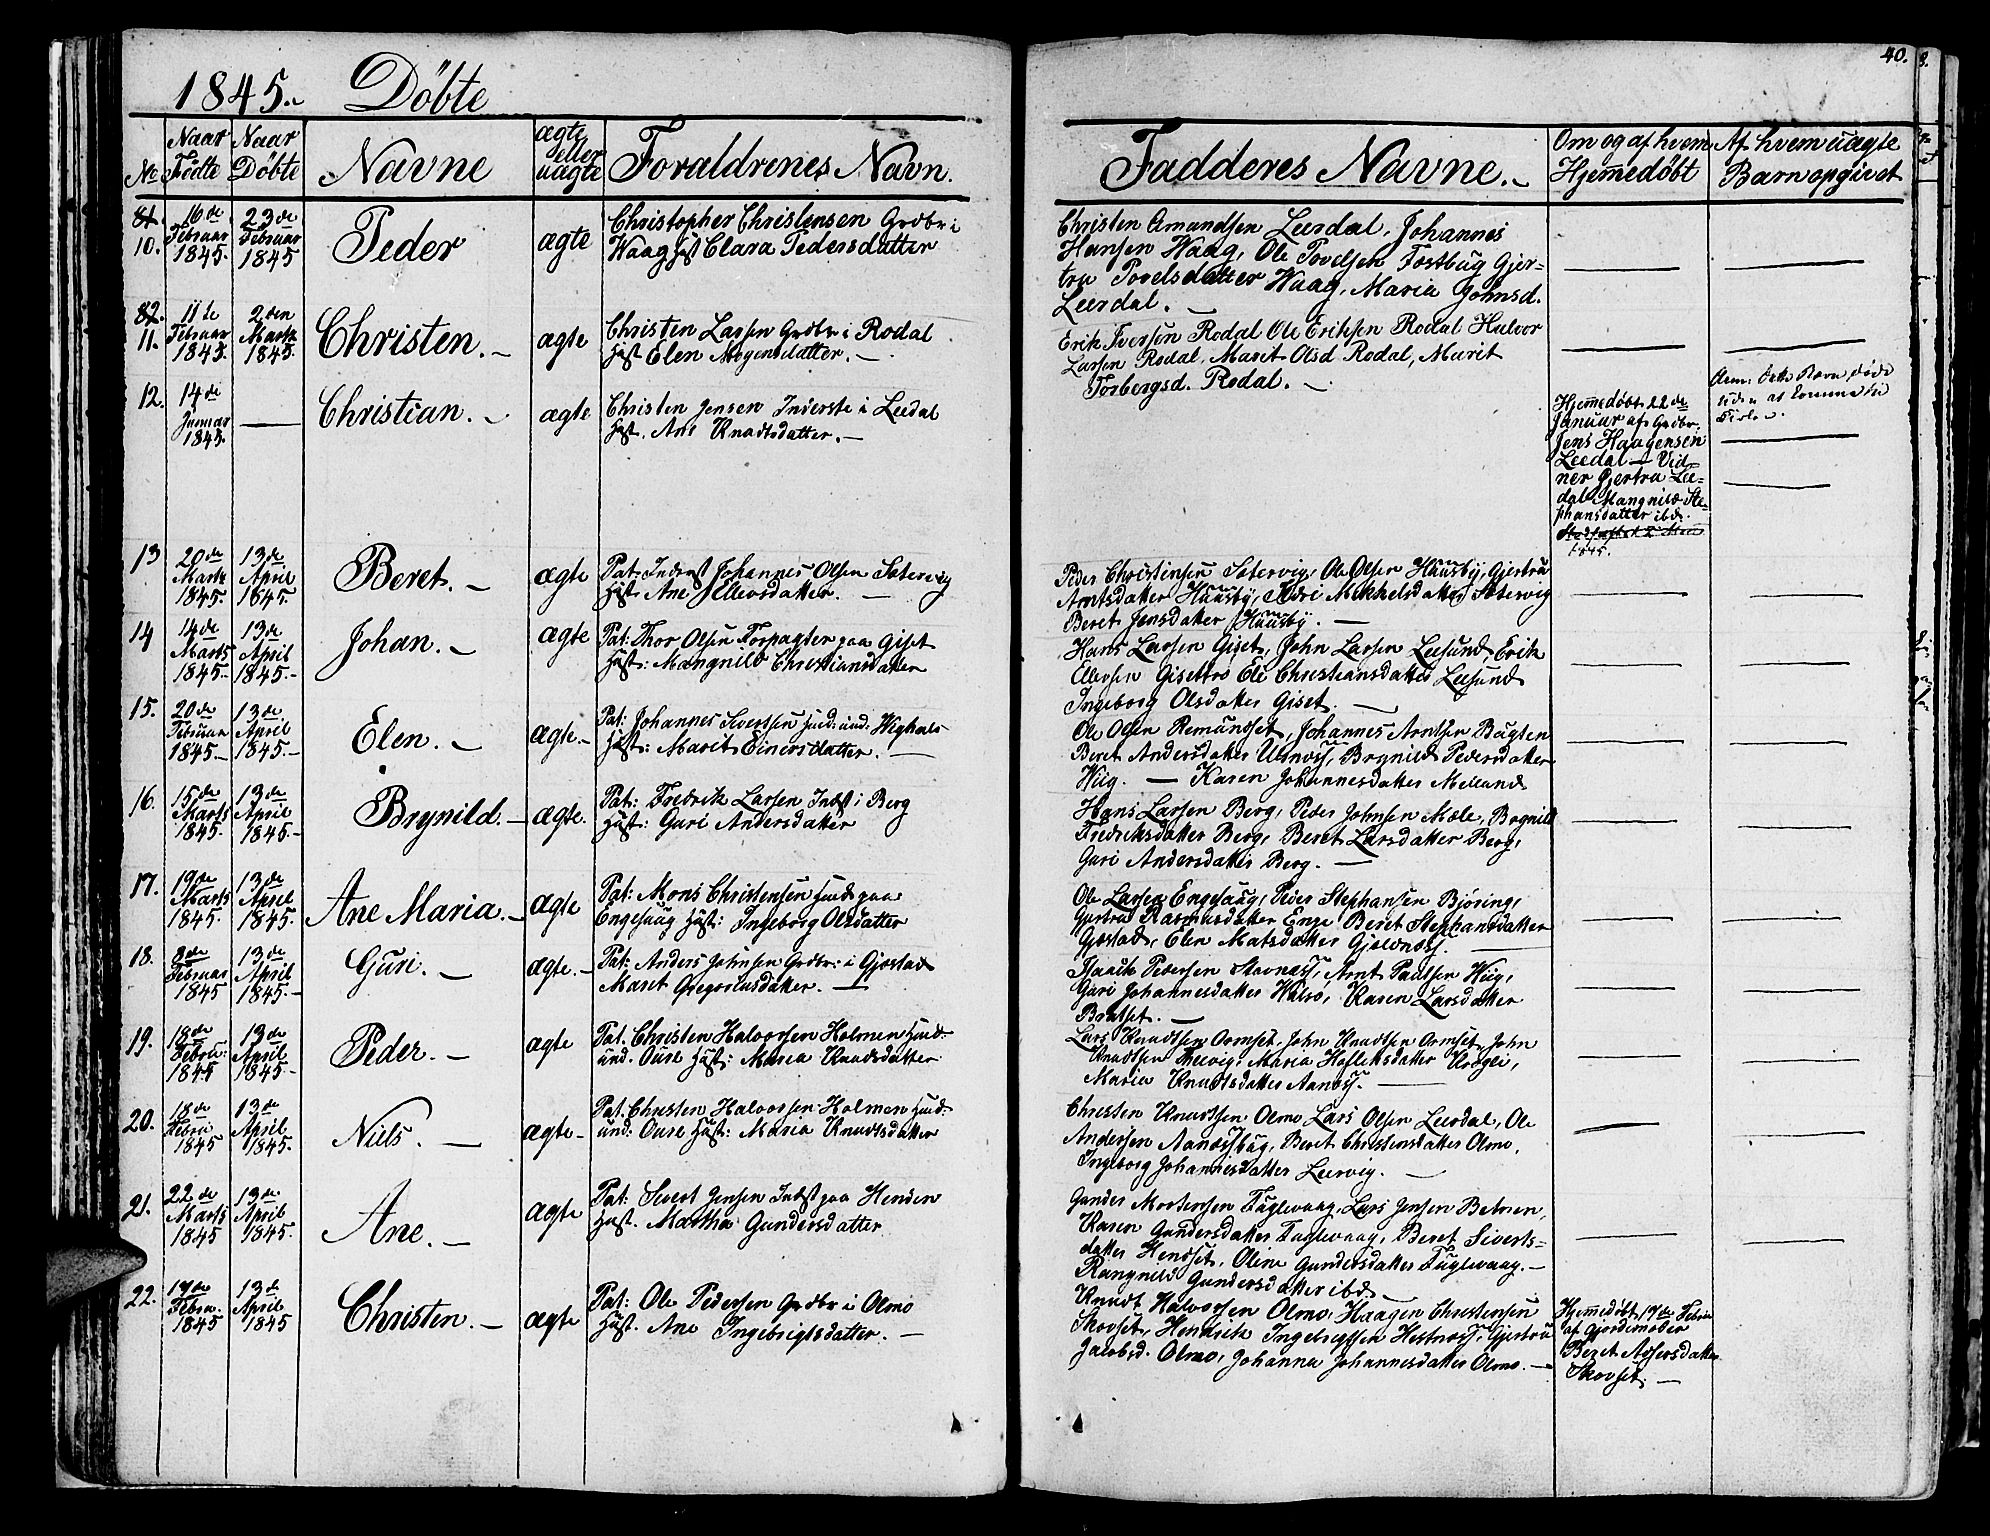 1845. Döbte
40.
No
Naar Födte
Naar Döbte
Navne
ægte eller uægte
Foraldrenes Navn.
Fadderes Navne.
Om og af hvem Hjemmedöbt
Af hvem uægte Barn opgivet
81. 10.
16de Februar 1845.
23de Februar 1845
Peder
ægte
Christopher Christensen Grdbr i
Waag Hust Clara Pedersdatter
Christen Amundsen Leerdal, Johannes
Hansen Waag, Ole Povelsen Fostbug Gjer-
tru Povelsdatter Waag, Maria Johnsd.
Leerdal.
82. 11.
11te Februar 1845.
2den Marts 1845.
Christen.
ægte
Christen Larsen Grdbr i Rodal
Hust Elen Mogensdatter.
Erik Iversen Rodal Ole Eriksen Rodal Halvor
Larsen Rodal, Marit Olsd Rodal, Marit
Torbergsd. Rodal.
12.
14de Januar 1845.
Christian.
ægte
Christen Jensen Inderste i Leedal
Hust. Ane Knudtsdatter.
Hjemmedöbt 22de
Januar af Grdbr.
Jens Haagensen
Leedal Vid-
ner Gjertru Lee-
dal Mangnild Ste-
phansdatter ibd.
1845.
Anm: Dette Barn döde
uden at komme til
Kirken.
13
20de Marts 1845.
13de April 1845.
Beret.
ægte
Pat: Inderst Johannes Olsen Satervig
Hust Ane Ellevsdatter.
Peder Christensen Satervig, Ole Olsen Huusby, Gjertru
Arntsdatter Huusby, Mikkelsdatter Satervig
Beret Jensdatter Huusby.
14
14de Marts 1845.
13de April 1845.
Johan.
ægte
Pat: Thor Olsen Forpagter paa Giset
Hust: Mangnild Christiansdatter
Hans Larsen Giset, John Larsen Leesund, Erik
Ellevsen Gisettrö Eli Christiansdatter Leesund
Ingeborg Olsdatter Giset.
15.
20de Februar 1845.
13de April 1845.
Elen.
ægte.
Pat: Johannes Sivertsen Huud: und:
Hust: Marit Einersdatter.
Ole Olsen Remundset, Johannes Arntsen Bugten
Beret Andersdatter Ulsnæss, Brynild Pedersdatter
Wiig. Karen Johannesdatter Melland
16.
15de Marts 1845.
13de April 1845.
Brynild.
ægte.
Pat: Fredrik Larsen Indst i Berg
Hust: Guri Andersdatter
Hans Larsen Berg, Peder Johnsen Mæle, Brynild
Fredriksdatter Berg, Beret Larsdatter Berg,
Guri Andersdatter Berg.
17.
19de Marts 1845.
13de April 1845.
Ane Maria.
ægte
Pat: Mons Christensen Huud paa
Engesaug Hust: Ingeborg Olsdatter
Ole Larsen Engesaug, Peder Stephansen Björing,
Gjertru Rasmusdatter Enge Beret Stephansdatter
Gjöstad, Elen Matsdatter Gjelvnæss.
18.
8de Februar 1845
13de April 1845.
Guri.
ægte.
Pat: Anders Johnsen Grdbr: i Gjöstad
Maret Gregoriusdatter.
Isaach Pedersen Stavnæss, Arnt Paulsen Wiig,
Guri Johannesdatter Walsö, Karen Larsdatter
Bratset.
19.
18de Febru: 1845
13de April 1845
Peder.
ægte
Pat. Christen Halvorsen Holmen Huud:
und. Oure Hust: Maria Knudsdatter
Lars Knudtsen Ormset, John Knudtsen Ormset, John
Knudtsen Maria Haftersdatter
Maria Knudtsdatter Aanæss.
20.
18de Febru 1845
13de April 1845.
Niels.
ægte
Pat. Christen Halvorsen Holmen Huud:
und: Oure Hust: Maria Knudtsdatter
Christen Knudtsen Olmo Lars Olsen Leerdal, Ole
Andersen Aanæssbug, Beret Christensdatter Olmo,
Ingeborg Johannisdatter Leervig.
21.
22de Marts 1845
13de April 1845.
Ane.
ægte
Pat: Sivert Jensen Indst paa Henden
Hust. Martha Gundersdatter
Gunder Mortensen Fuglevaag, Lars Jensen Betnen,
Karen Gundersdatter Fuglevaag, Beret Siverts-
datter Hendset, Oline Gundersdatter Fuglevaag.
Rangnild Gundersdatter ibd
22.
17de Febru. 1845
13de April 1845
Christen.
ægte
Pat: Ole Pedersen Grdbr i Olmo
Hust. Ane Ingebrigtsdatter.
Knudt Halvorsen Olmo Haagen Christensen
Skovset, Hendrik Ingebrigtsen Hestnæss, Gjertru
Jacobsd. Olmo, Johanna Johannesdatter Olmo.
Hjemmedöbt 19de Febru
af Gjordemoder
Beret Assersdatter
Skovset.